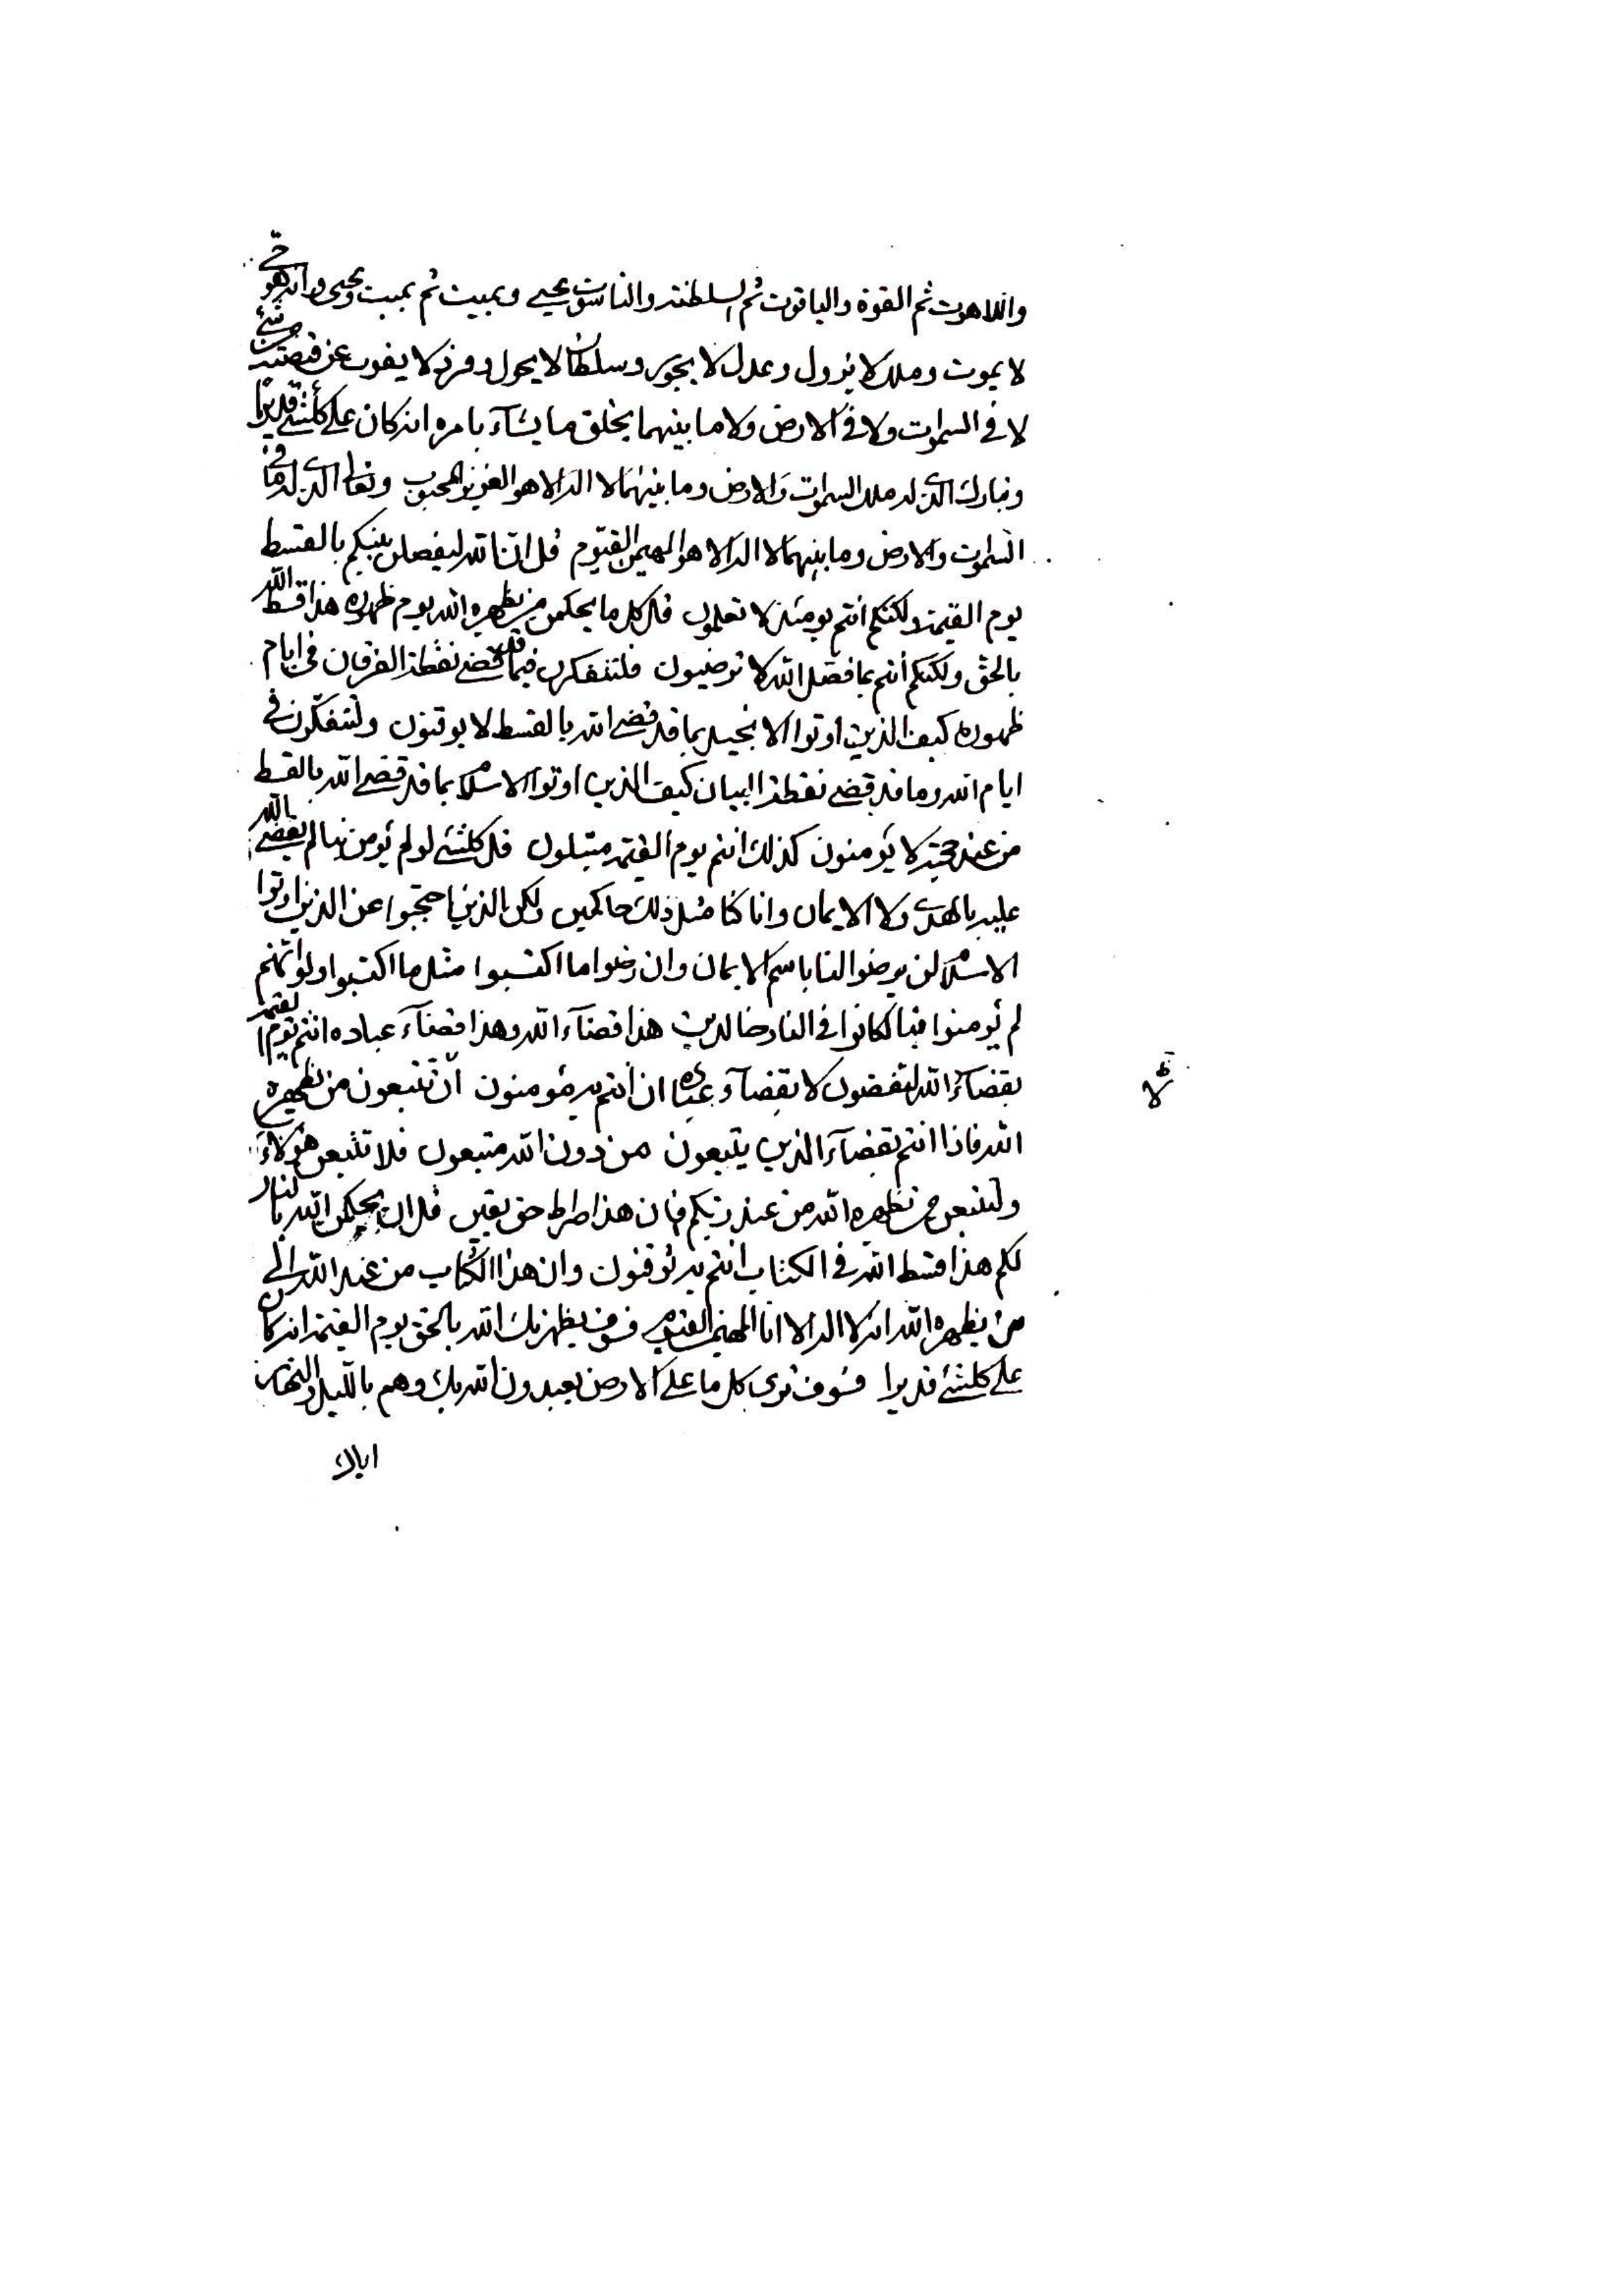 واللاهوت ثم القوة والياقوت ثم السلطنة والناسوت يحيى ويميت ثم يميت ويحيى وانه هو حي
لا يموت وملك لا يزول وعدل لا يجور وسلطان لا يحول وفرد لا يفوت عن قبضته من شئ
لا في السموات ولا في الارض ولا ما بينهما يخلق ما يشآء بامره انه كان على كلشئ قديرا
وتبارك الذي له ملك السموات والارض وما بينهما لا اله الا هو العزيز المحبوب وتعالى الذي له ما في
السموات والارض وما بينهما لا اله الا هو المهيمن القيوم قل انما الله ليفصلن بينكم بالقسط
يوم القيمة ولكنكم أنتم يومئذ لا تعلمون قل كل ما يحكمن من يظهره الله يوم ظهوره هذا قسط الله
بالحق ولكنكم أنتم بما فصل الله لا ترضيون فلتتفكرن فيما قد قضى نقطة الفرقان في ايام
ظهوره كيف الذين اوتوا الانجيل بما قد قضى الله بالقسط لا يوقنون ولتتفكرون في
ايام الله وما قد قضى نقطة البيان كيف الذين اوتوا الاسلام بما قد قضى الله بالقسط
من عند حجته لا يؤمنون كذلك انتم يوم القيمة مبتلون قل كلشئ لو لم يؤمن بنا لم يقضى الله
عليه بالهدى ولا الايمان وانا كنا مثل ذلك حاكمين ولكن الذين احتجبوا عن الذين اوتوا
الاسلام لن يرضوا لنا باسم الايمان وان رضوا ما اكتسبوا مثل ما اكتسبوا ولو انهم
لم يؤمنوا بنا لكانوا في النار خالدين هذا قضآء الله وهذا قضآء عباده انتم يوم القيمة
بقضآء الله لتقضون لا بقضآء عباده ان أنتم به مؤمنون ان تتبعون من يظهره
الله فاذا انتم بقضآء الذين يتبعون من دون الله متبعون فلا تتبعن هؤلآء
ولتتبعن من يظهره الله من عند ربكم فان هذا صراط حق يقين قل ان يحكمن الله بالنار
لكم هذا قسط الله في الكتاب انتم به توقنون وان هذا الكتاب من عند الله الى
من يظهره الله انه لا اله الا انا المهيمن القيوم فسوف يظهرنك الله بالحق يوم القيمة انه كان
على كلشئ قديرا فسوف ترى كل ما على الارض يعبدون الله بك وهم بالليل والنهار
اياك